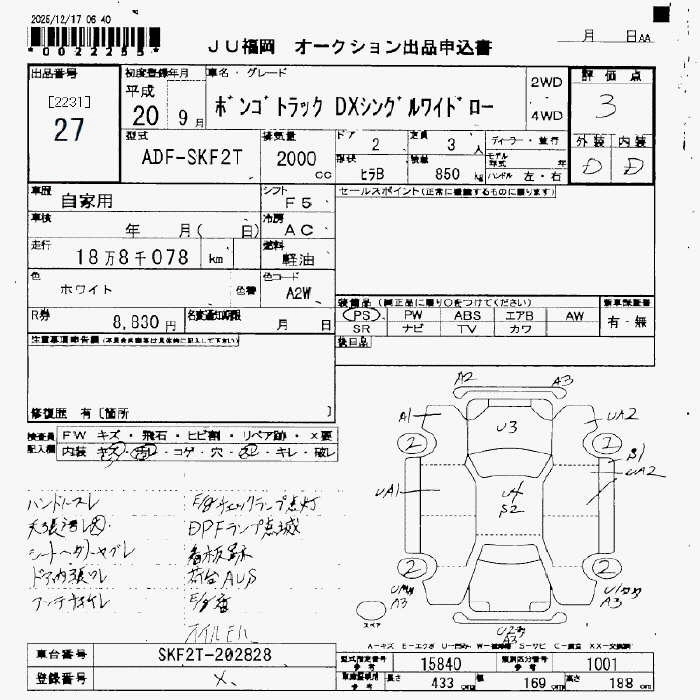 2025/12/17 06 40
*0022255*
JU福岡 オークション出品申込書
月 日 AA
出品番号
[2231]
27
初度登録年月
平成
20 9月
車名・グレード
ボンゴトラック DXシングルワイドロー
2WD
4WD
評価点
3
外装 内装
D D
型式
ADF-SKF2T
排気量
2000 cc
ドア 2
定員 3 人
ディーラー・並行
形状 ヒラB
積載 850 kg
モデル年式 年
ハンドル 左・右
車歴 自家用
シフト F5
セールスポイント(正常に機能するものに限ります)
車検 年 月( 日)
冷房 AC
走行 18万8千078 km
燃料 軽油
色 ホワイト 色替
色コード A2W
装備品(純正品に限り○をつけてください)
新車保証書
PS PW ABS エアB AW
SR ナビ TV カワ
有・無
R券 8,830円
名変通知期限 月 日
後日品
注意事項申告欄
修復歴 有 [箇所 ]
検査員記入欄
FW キズ・飛石・ヒビ割・リペア跡・X要
内装 キズ・汚れ・コゲ・穴・・キレ・破レ
A2
A3
A1
U3
UA2
2
1
B1
UA2
UA1
U4
S2
2
2
A3
A3
A3
スペア
ハンドルスレ
E/gチェックランプ点灯
DPFランプ点滅
看板跡
荷台AUS
E/g音
オイルモレ
A-キズ E-エクボ U-凹み W-補修跡 S-サビ C-腐食 XX-交換済
車台番号 SKF2T-202828
登録番号
型式指定番号 参考 15840
類別区分番号 参考 1001
参考 長さ 433 cm 幅 169 cm 高さ 188 cm